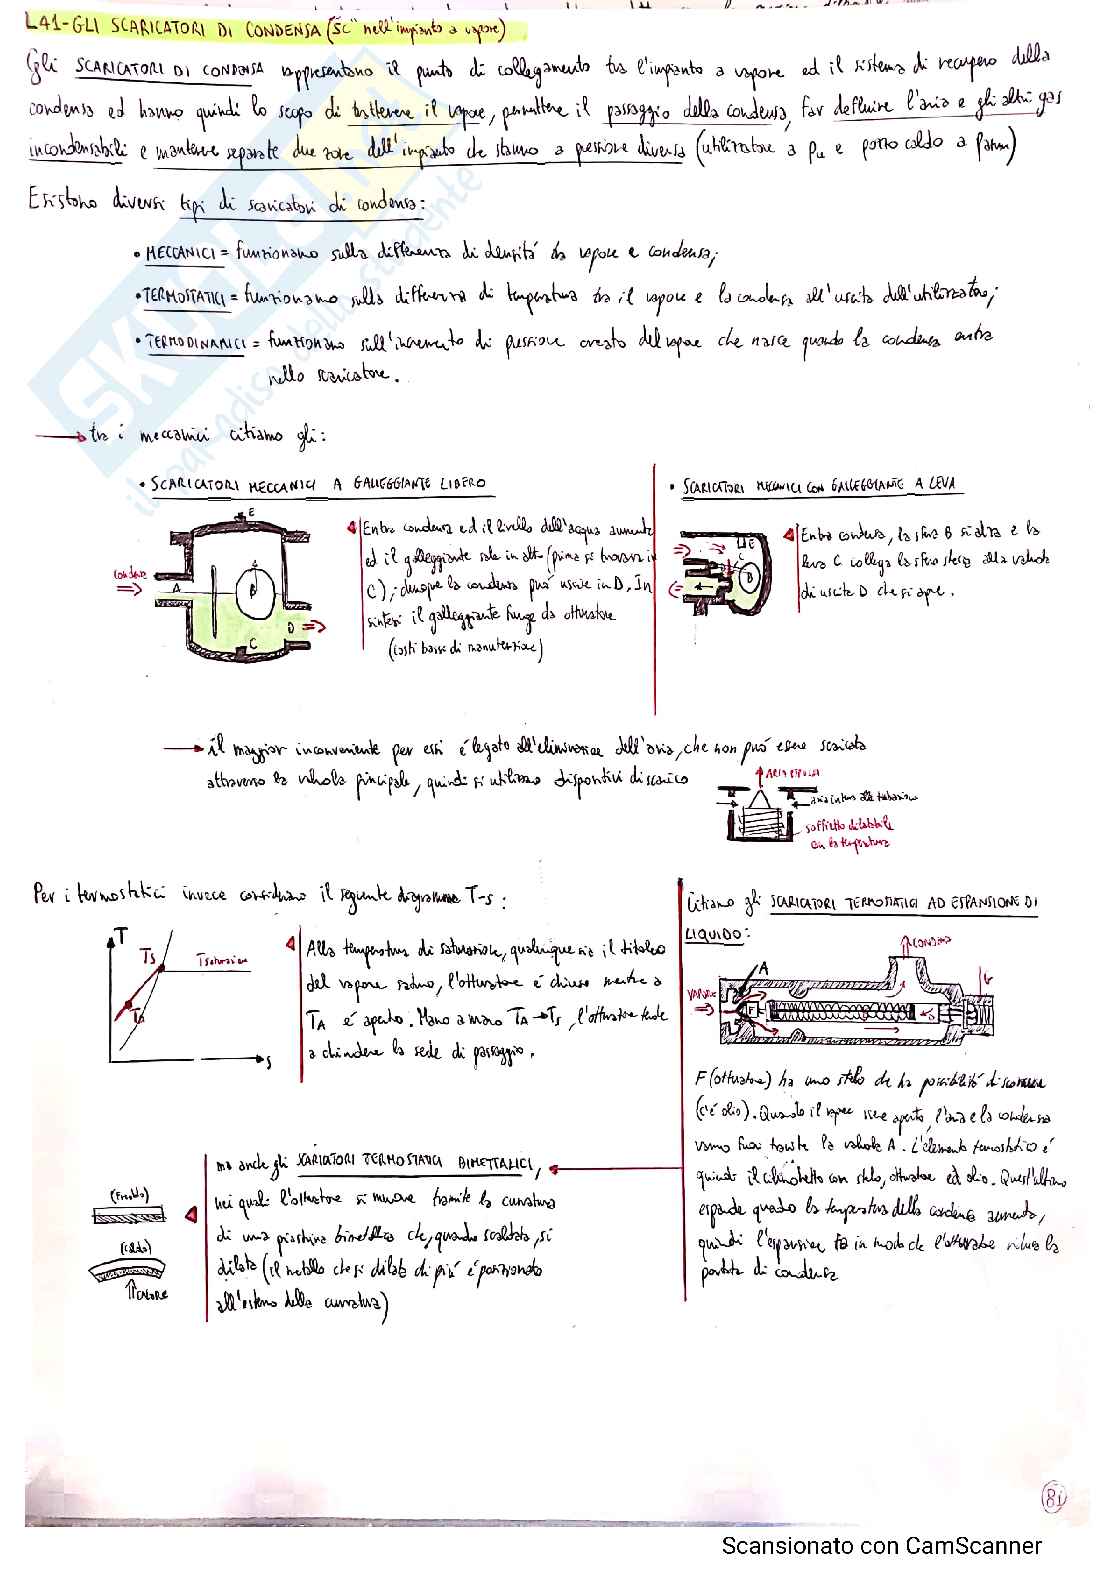 L41-GLI SCARICATORI DI CONDENSA ("SC" nell'impianto a vapore)
Gli SCARICATORI DI CONDENSA rappresentano il punto di collegamento tra l'impianto a vapore ed il sistema di recupero della
condensa ed hanno quindi lo scopo di trattenere il vapore, permettere il passaggio della condensa, far defluire l'aria e gli altri gas
incondensabili e mantenere separate due zone dell'impianto che stanno a pressione diversa (utilizzatore a pu e pozzo caldo a patm)
Esistono diversi tipi di scaricatori di condensa:
• MECCANICI = funzionano sulla differenza di densitá tra vapore e condensa;
• TERMOSTATICI = funzionano sulla differenza di temperatura tra il vapore e la condensa all'uscita dell'utilizzatore;
• TERMODINAMICI = funzionano sull'incremento di pressione creato del vapore che nasce quando la condensa entra
nello scaricatore.
tra i meccanici citiamo gli:
• SCARICATORI MECCANICI A GALLEGGIANTE LIBERO
E
Condensa
A
B
C
D
Entra condensa ed il livello dell'acqua aumenta
ed il galleggiante sale in alto (prima si trovava in
C); dunque la condensa puó uscire in D. In
sintesi il galleggiante funge da otturatore
(costi bassi di manutenzione)
• SCARICATORI MECCANICI CON GALLEGGIANTE A LEVA
E
C
B
Entra condensa, la sfera B si alza e la
leva C collega la sfera stessa alla valvola
di uscita D che si apre.
il maggior inconveniente per essi é legato all'eliminazione dell'aria, che non puó essere scaricata
attraverso la valvola principale, quindi si utilizzano dispositivi di scarico
ARIA ESPULSA
aria interna alle tubazioni
soffietto dilatabile
con la temperatura
Per i termostatici invece consideriamo il seguente diagramma T-s:
T
Ts
Tsaturazione
TA
s
Alla temperatura di saturazione, qualunque sia il titolo
del vapore saturo, l'otturatore é chiuso mentre a
TA é aperto. Mano a mano TA→Ts, l'otturatore tende
a chiudere la sede di passaggio.
Citiamo gli SCARICATORI TERMOSTATICI AD ESPANSIONE DI
LIQUIDO:
CONDENSA
A
VAPORE
F
F (otturatore) ha uno stelo che ha possibilitá di scorrere
(c'é olio). Quando il vapore viene aperto, l'aria e la condensa
vanno fuori tramite la valvola A. L'elemento termostatico é
quindi il cilindretto con stelo, otturatore ed olio. Quest'ultimo
espande quando la temperatura della condensa aumenta,
quindi l'espansione fa in modo che l'otturatore riduca la
portata di condensa
ma anche gli SCARICATORI TERMOSTATICI BIMETALLICI,
nei quali l'otturatore si muove tramite la curvatura
di una piastrina bimetallica che, quando scaldata, si
dilata (il metallo che si dilata di piú é posizionato
all'esterno della curvatura)
(Freddo)
(Caldo)
CALORE
81
Scansionato con CamScanner